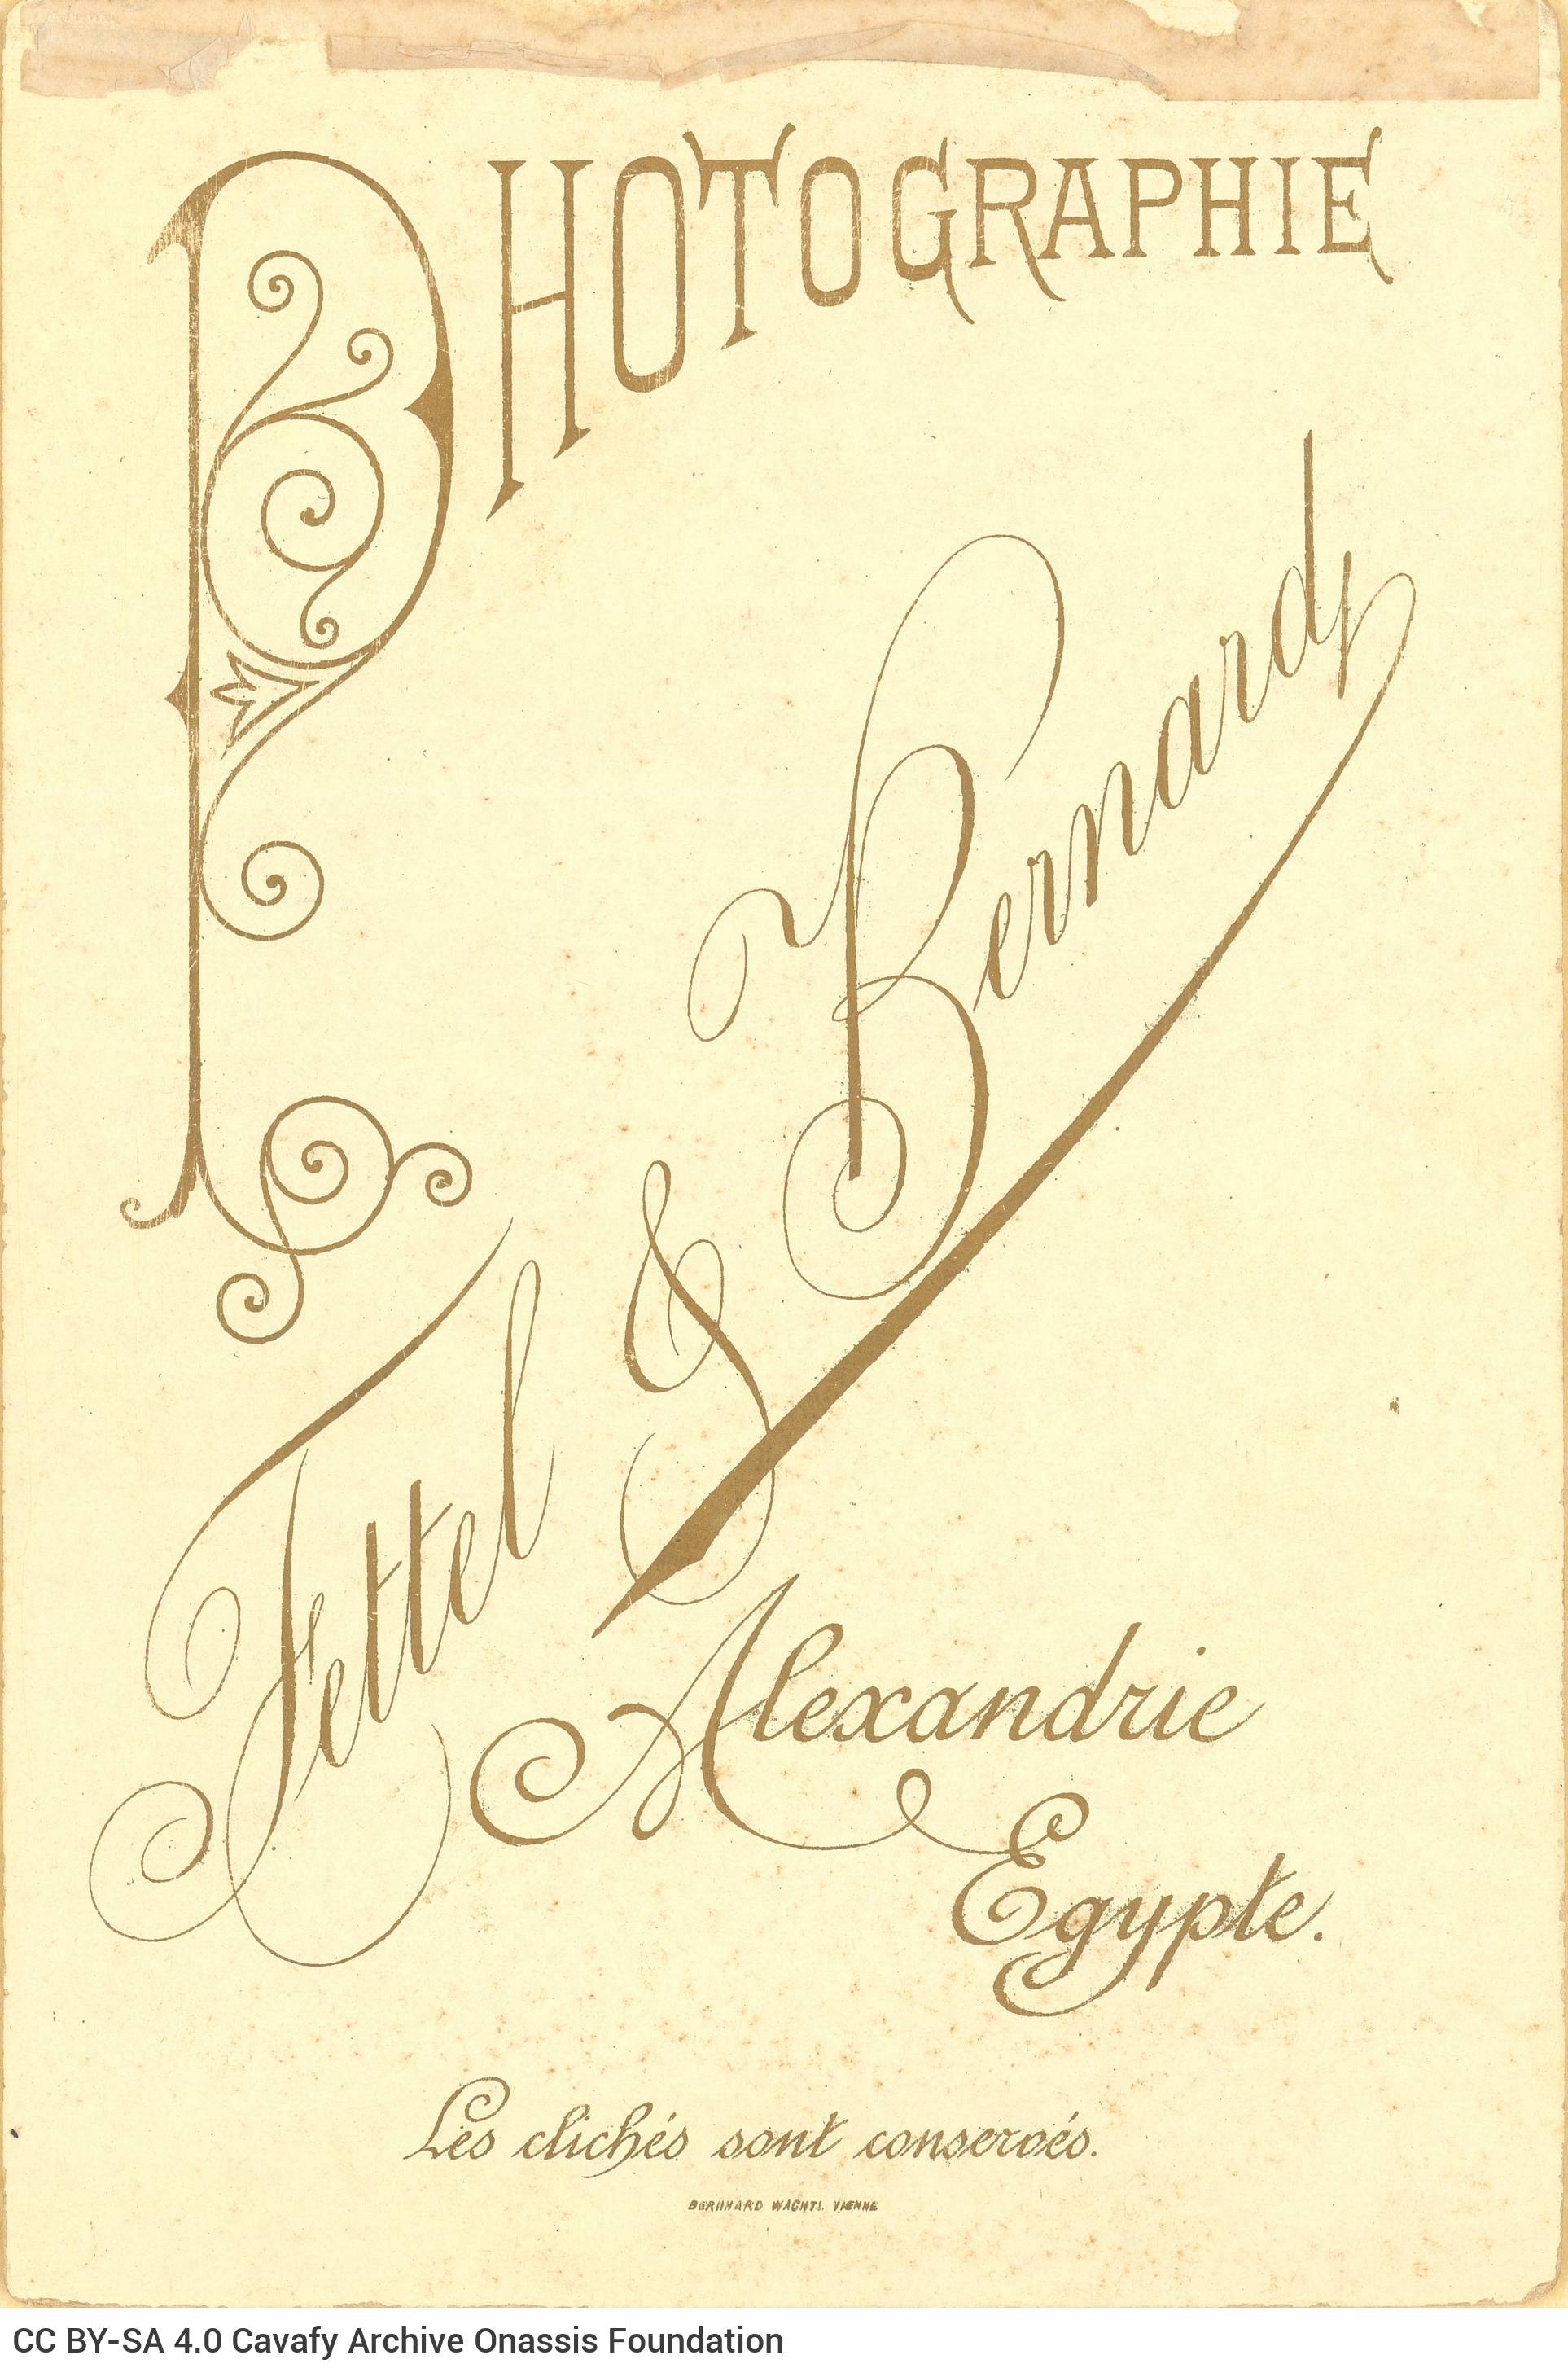 PHOTOGRAPHIE
Fettel & Bernard
Alexandrie
Egypte.
Les clichés sont conservés.
BERNHARD WACHTL VIENNE
CC BY-SA 4.0 Cavafy Archive Onassis Foundation